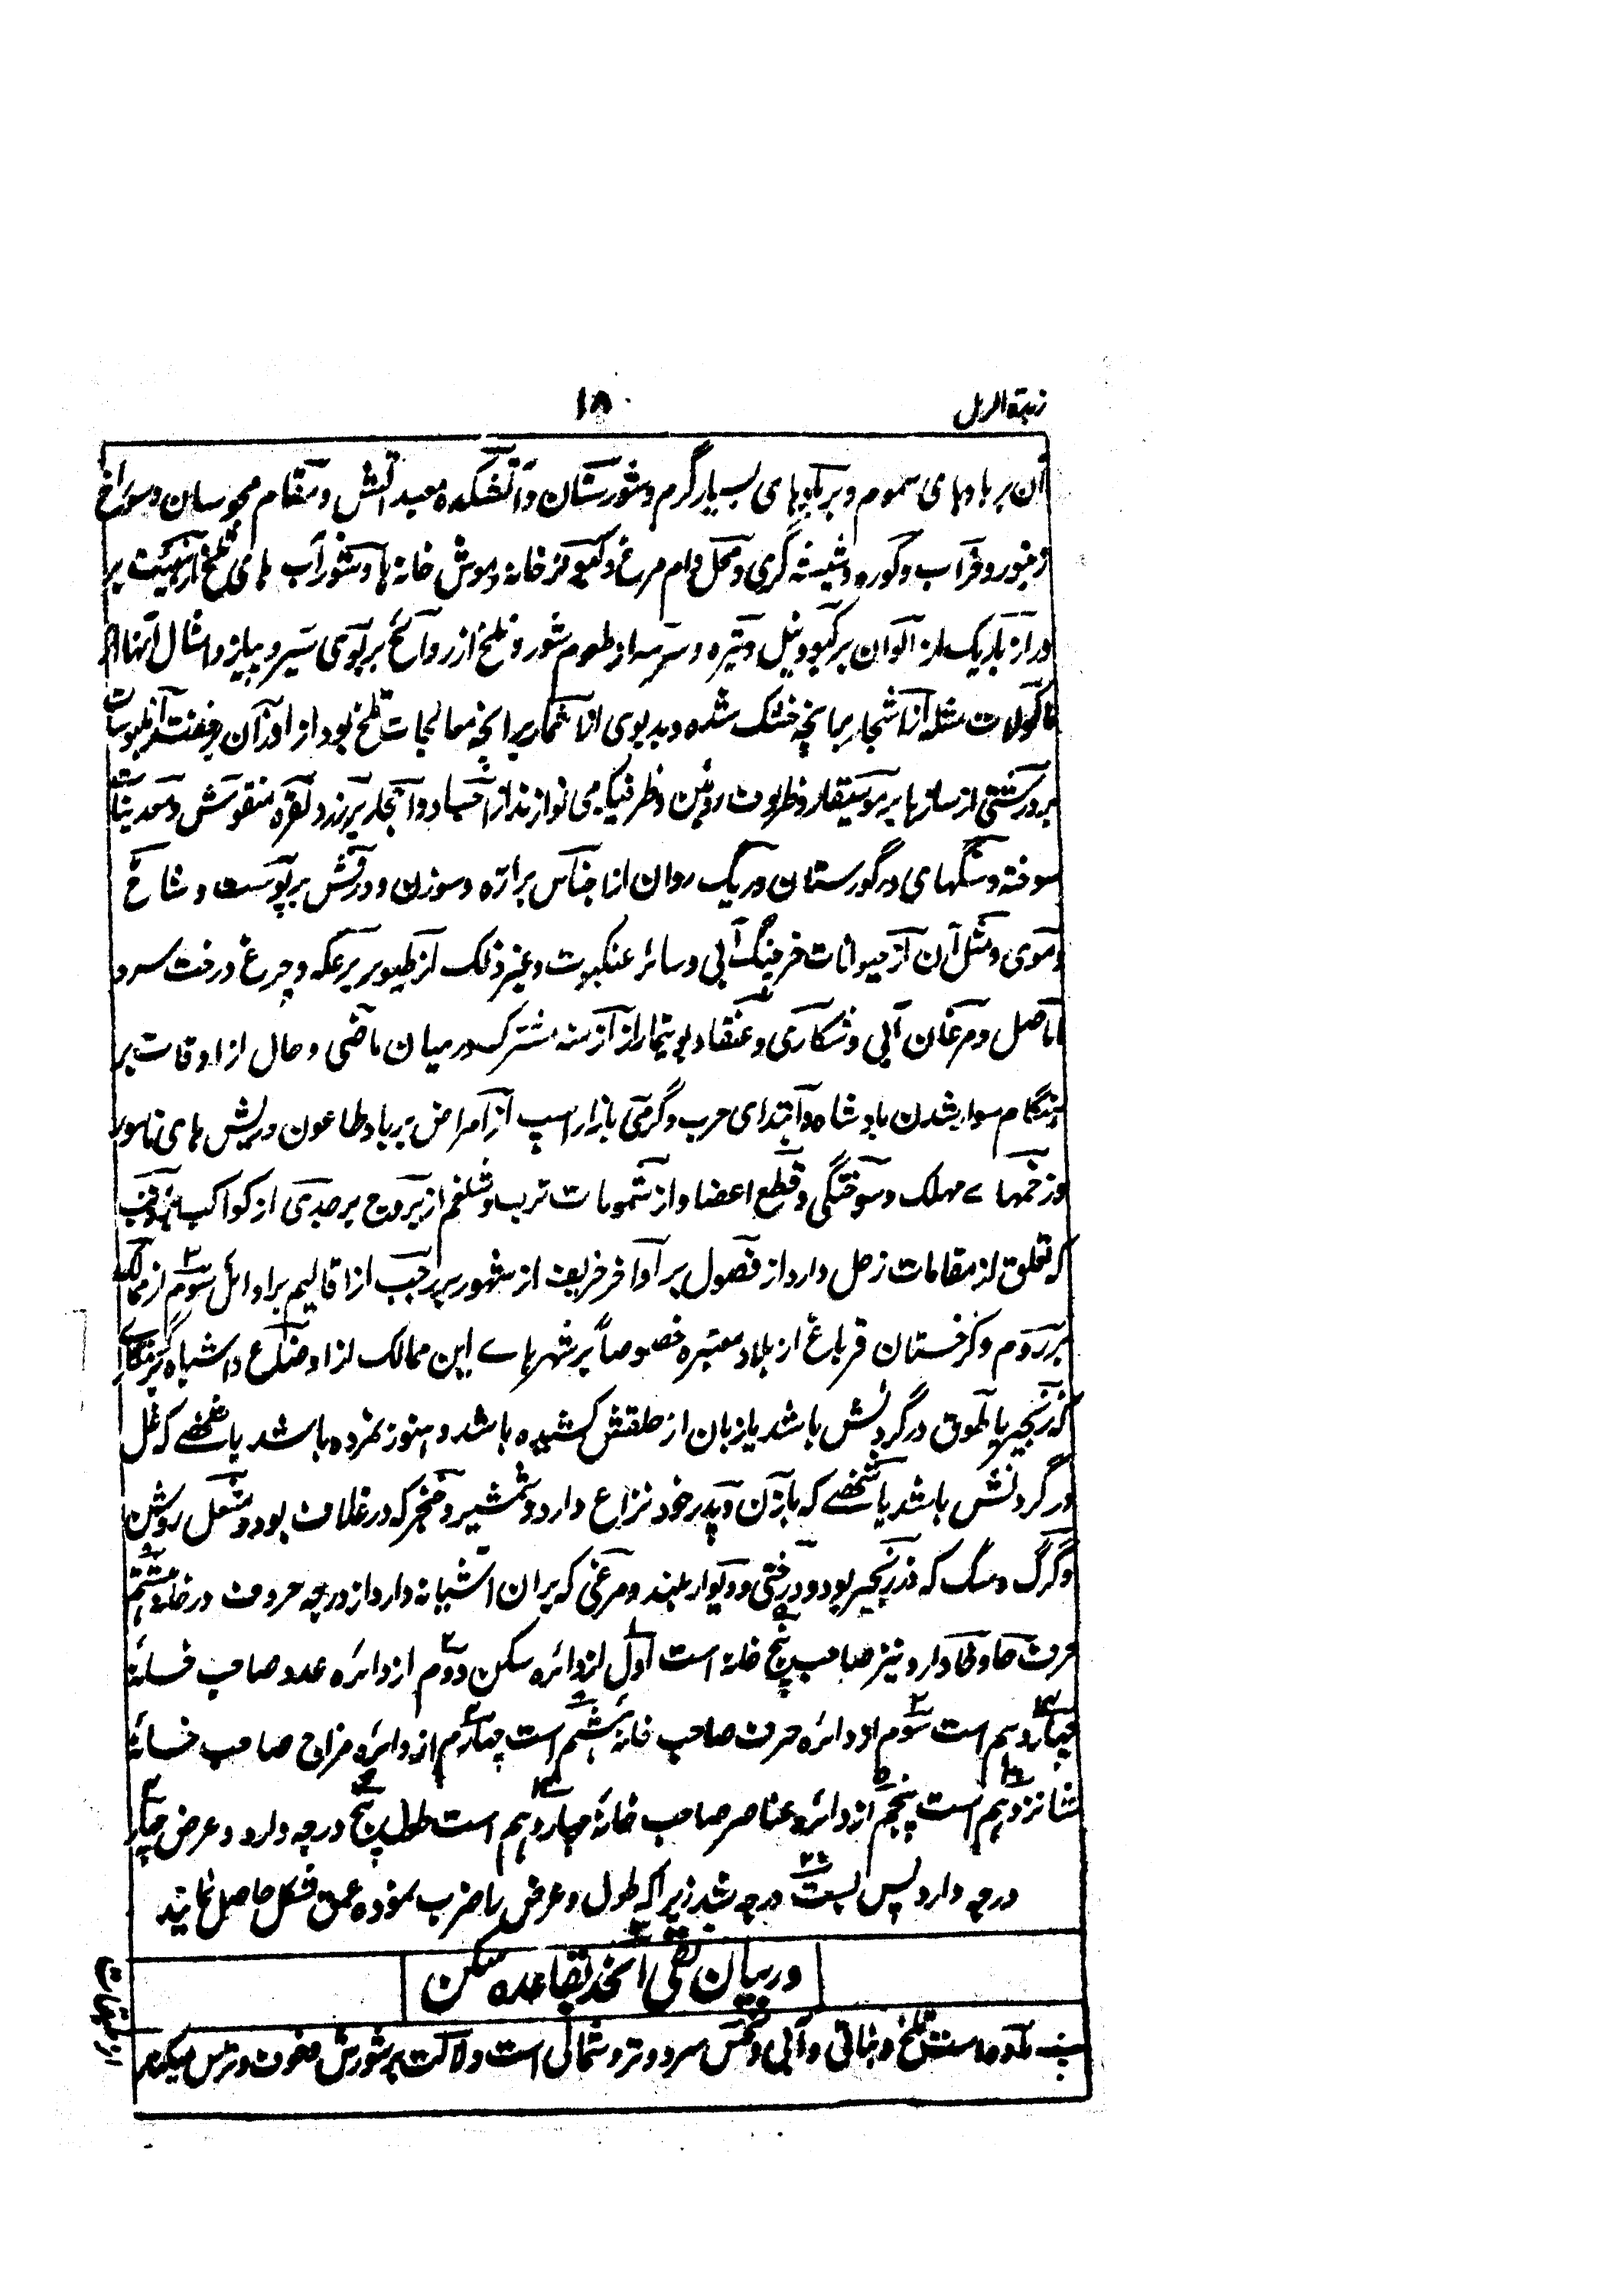 زبدة الرمل
۱۸
آن بر بادهای سموم و بر بادهای بسیار گرم و شورستان و آتشکده معبد آتش و مقام مجوسان و سوراخ
زنبور و و کوره و شیشه گری و محل دام مرغ و کبوتر خانه و موش خانه ها و شور آب های تلخ از هیئت بر
دراز باریک از الوان بر کبود و نیل و تیره و سرمه از طعوم شور و تلخ از روائح بر بوی سیر و پیاز و امثال آنها از
ماکولات از اشجار بر آنچه خشک شده و بدبوی از اثمار بر آنچه معالجات تلخ بود از
بر از سازها بر موسیقار و ظروف روئین و ظرفیکه می نوازند از اجساد و احجار بر زر و نقره منقوش و معدنیات
سوخته و سنگهای در گورستان و ریگ روان از اجناس بر اره و سوزن و درفش بر پوست و شاخ
و موی و مثل آن از حیوانات خرچنگ آبی و سائر عنکبوت و غیر ذلک از طیور بر عکه و چرغ درخت سرو
ماصل و مرغان آبی و شکاری و عنقا و بوتیمار از ازمنه مشترک درمیان ماضی و حال از اوقات بر
هنگام سوار شدن بادشاه و ابتدای حرب و گرمی بازار اسپ از امراض بر باد طاعون و ریش های ناسور
و زخمهاے مهلک و سوختگی و قطع اعضا و از مشمومات ترب و شلغم از بروج بر جدی از کواکب
که تعلق از مقامات زحل دارد از فصول بر آواخر خریف از شهور بر رجب از اقالیم بر اوائل سوم از ممالک
بر روم و کرخستان قرباغ از بلاد معتبره خصوصاً بر شهرهاے این ممالک از اوضاع و اشباه
که زنجیر یا طوق در گردنش باشد یا زبان از حلقش کشیده باشد و هنوز نمرده باشد یا شخصے که غل
در گردنش باشد یا شخصے که با زن و پدر خود نزاع دارد و شمشیر و خنجر که در غلاف بود و مشعل روشن
و گرگ و سگ که در زنجیر بود و درختی و دیوار بلند و مرغی که بر آن آشیانه دارد از درجه حروف در خانه هشتم
حرف حا و ظا دارد و نیز صاحب پنج خانه است اول از دائره سکن دوم از دائره عدد صاحب خانۀ
چهاردهم است سوم از دائره حرف صاحب خانۀ هشتم است چهارم از دائره مزاج صاحب خانۀ
شانزدهم است پنجم از دائره عناصر صاحب خانۀ چهاردهم است طول پنج درجه دارد و عرض چهار
درجه دارد پس بست درجه شد زیرا که طول و عرض را ضرب نموده عمق شکل حاصل نمایند
در بیان نقی الخد بقاعده سکن
تلخ و نباتی و آبی و نحس سرد و تر و شمالی است و دلالت بر شورش و خوف و ترس میکند